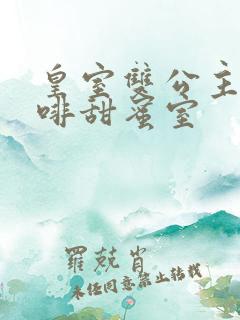 皇室雙公主
啡甜蜜室
羅兢肖
未經同意禁止轉載